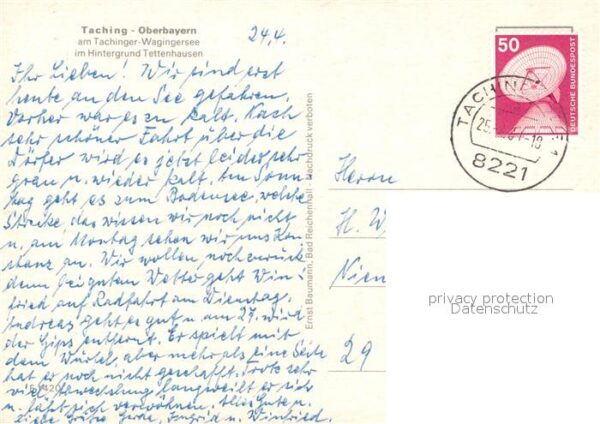 Taching - Oberbayern
am Tachinger-Wagingersee
im Hintergrund Tettenhausen
24.4.
Ihr Lieben! Wir sind erst
heute an den See gefahren.
Vorher war es zu kalt. Nach
sehr schöner Fahrt über die
Dörfer wird es jetzt leider sehr
grau u. wieder kalt. Am Sonn
tag geht es zum Bodensee, welche
Strecke, das wissen wir noch nicht
u. am Montag sehen wir uns Kon
stanz an. Wir wollen noch zurück
denn bei gutem Wetter geht Win
fried auf Radfahrt am Dienstag.
Andreas geht es gut u. am 27. wird
der Gips entfernt. Er spielt mit
dem Würfel, aber mehr als eine Seite
hat er noch nicht geschafft. Trotz sehr
viel Abwechslung langweilt er sich
u. läßt sich verwöhnen. Alles Gute u.
liebe Grüße Gerda, Ingrid u. Winfried.
Ernst Baumann, Bad Reichenhall - Nachdruck verboten
50
DEUTSCHE BUNDESPOST
TACHING
8221
Herrn
H. W
Nien
29
privacy protection
Datenschutz